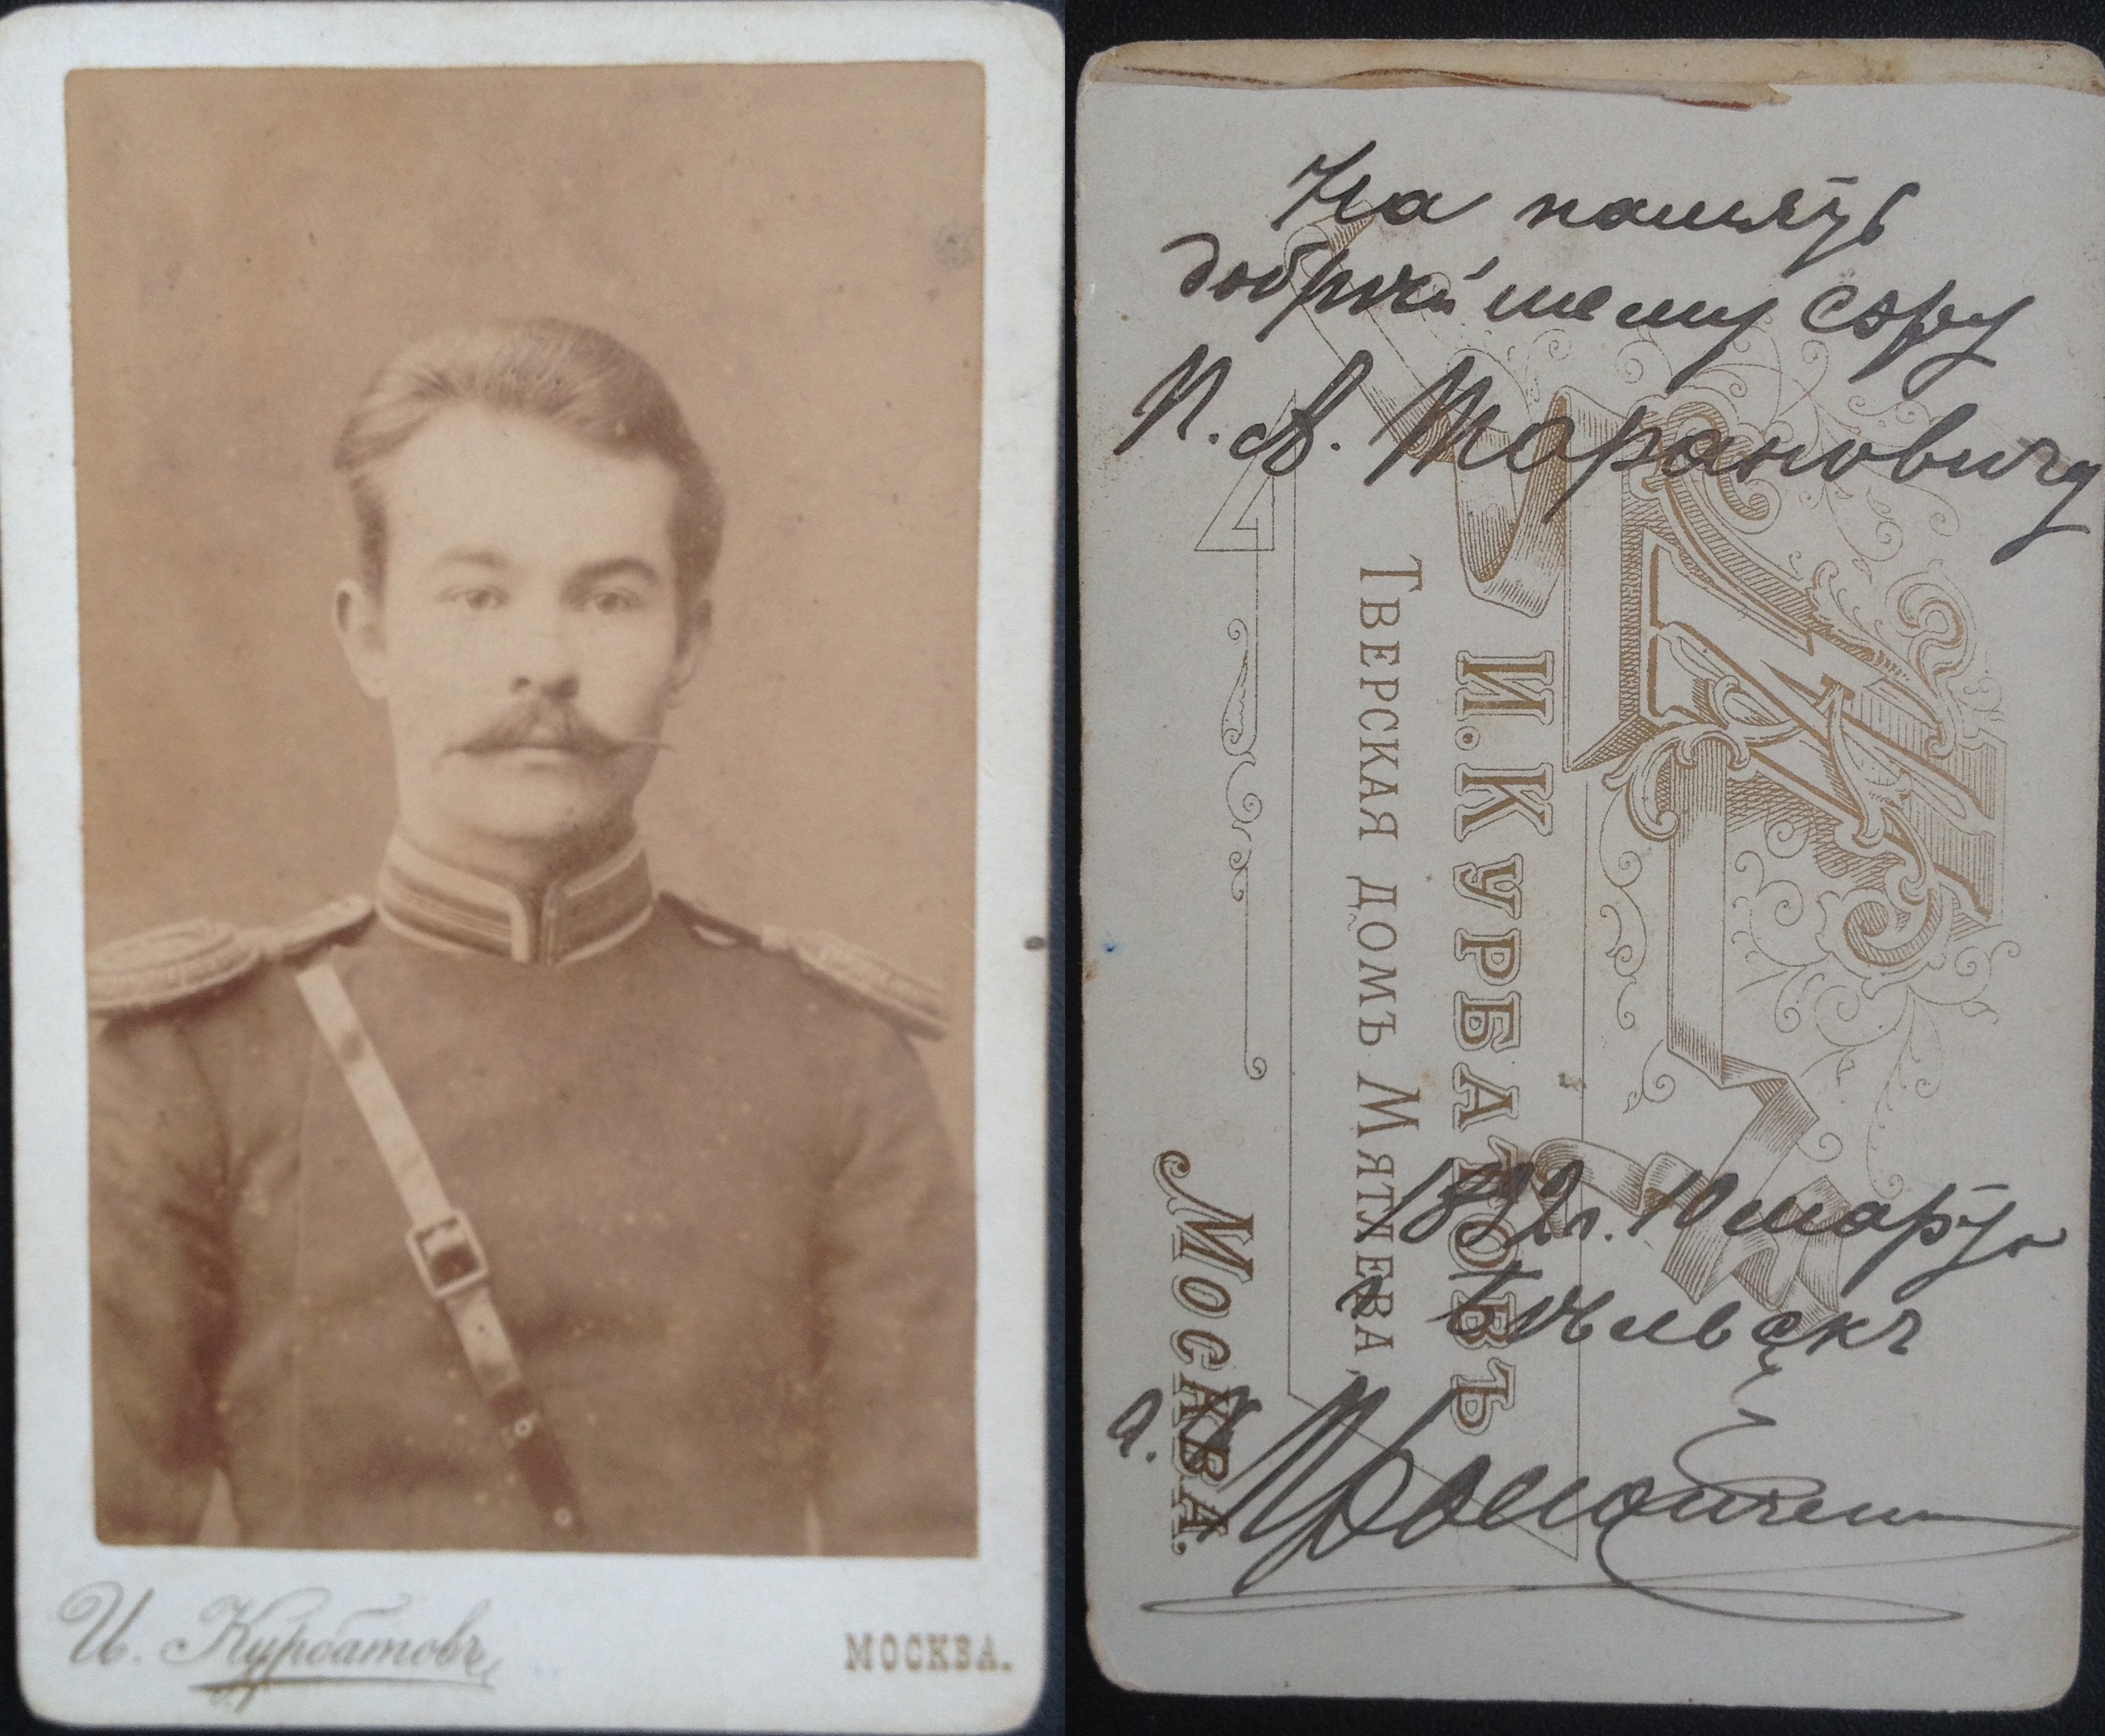 И. Курбатовъ
МОСКВА.
На память
добрѣйшему сэру
П. А. Тарановичу
И. КУРБАТОВЪ
ТВЕРСКАЯ ДОМЪ МЯТЛЕВА,
МОСКВА.
1892 г. 10 марта
г. Бѣльскъ
А.